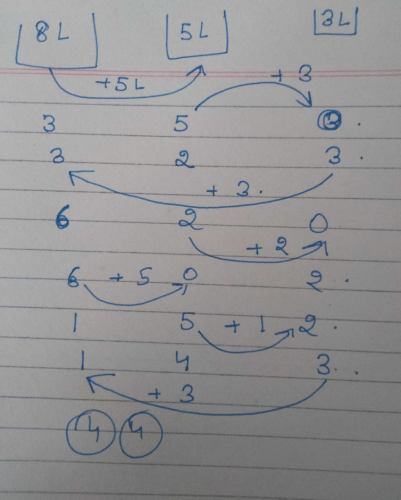 8L 5L 3L
+5L +3
3 5 0 .
3 2 3 .
+ 3.
6 2 0
+ 2
6 + 5 0 2 .
1 5 + 1 2 .
1 4 3 . .
+ 3
4 4